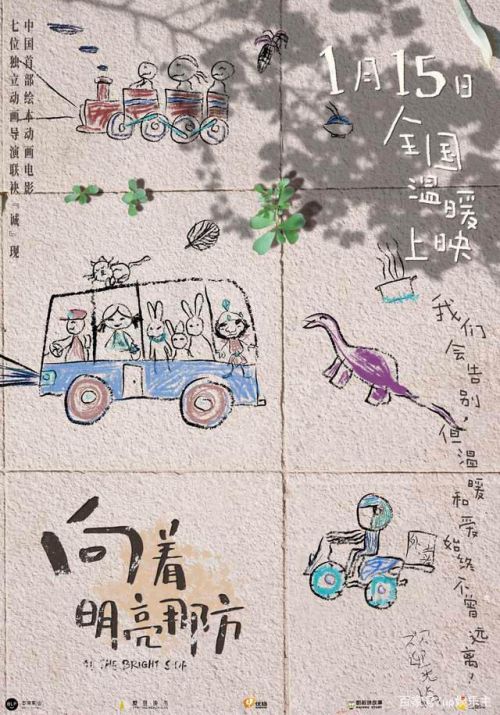 中国首部绘本动画电影
七位独立动画导演联袂『诚』现
1月15日
全国
温暖
上映
我们会告别，
但温暖和爱
始终不曾远离！
外卖
欢迎光临
向着
明亮那方
TO THE BRIGHT SIDE